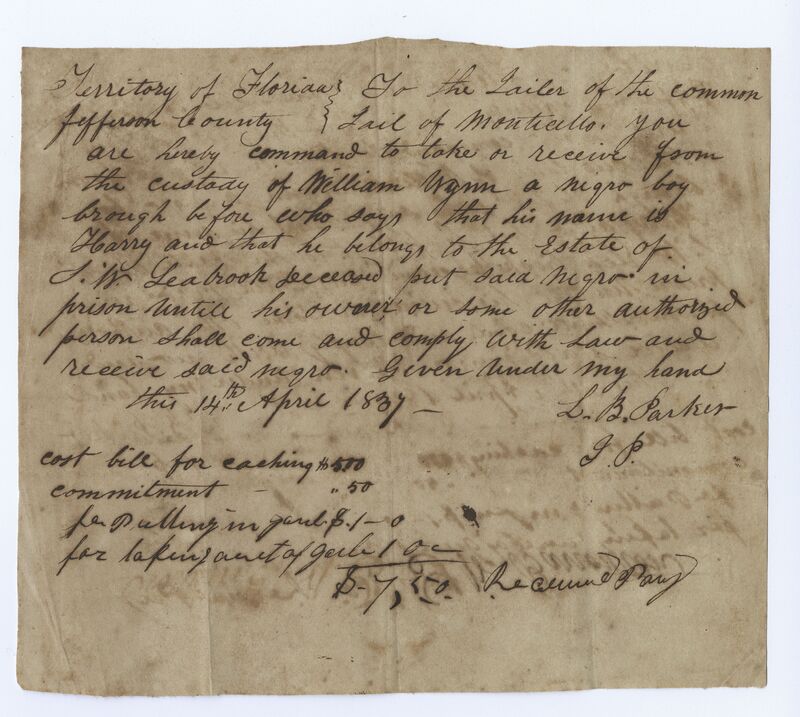 Territory of Florida } To the Jailer of the common
Jefferson County } Jail of Monticello. you
are hereby command to take or receive from
the custody of William Wynn a negro boy
brough before who says that his name is
Harry and that he belongs to the Estate of
J. W. Seabrook deceased put said negro in
prison untill his owner or some other authorized
person shall come and comply with Law and
receive said negro. Given under my hand
this 14th April 1837 — L. B. Parker
J. P.
cost bill for caching $5 00
commitment — " 50
for Putting in gaol $.1-0
for taking out of Gaile 1 00
$-7,50. Received Pay